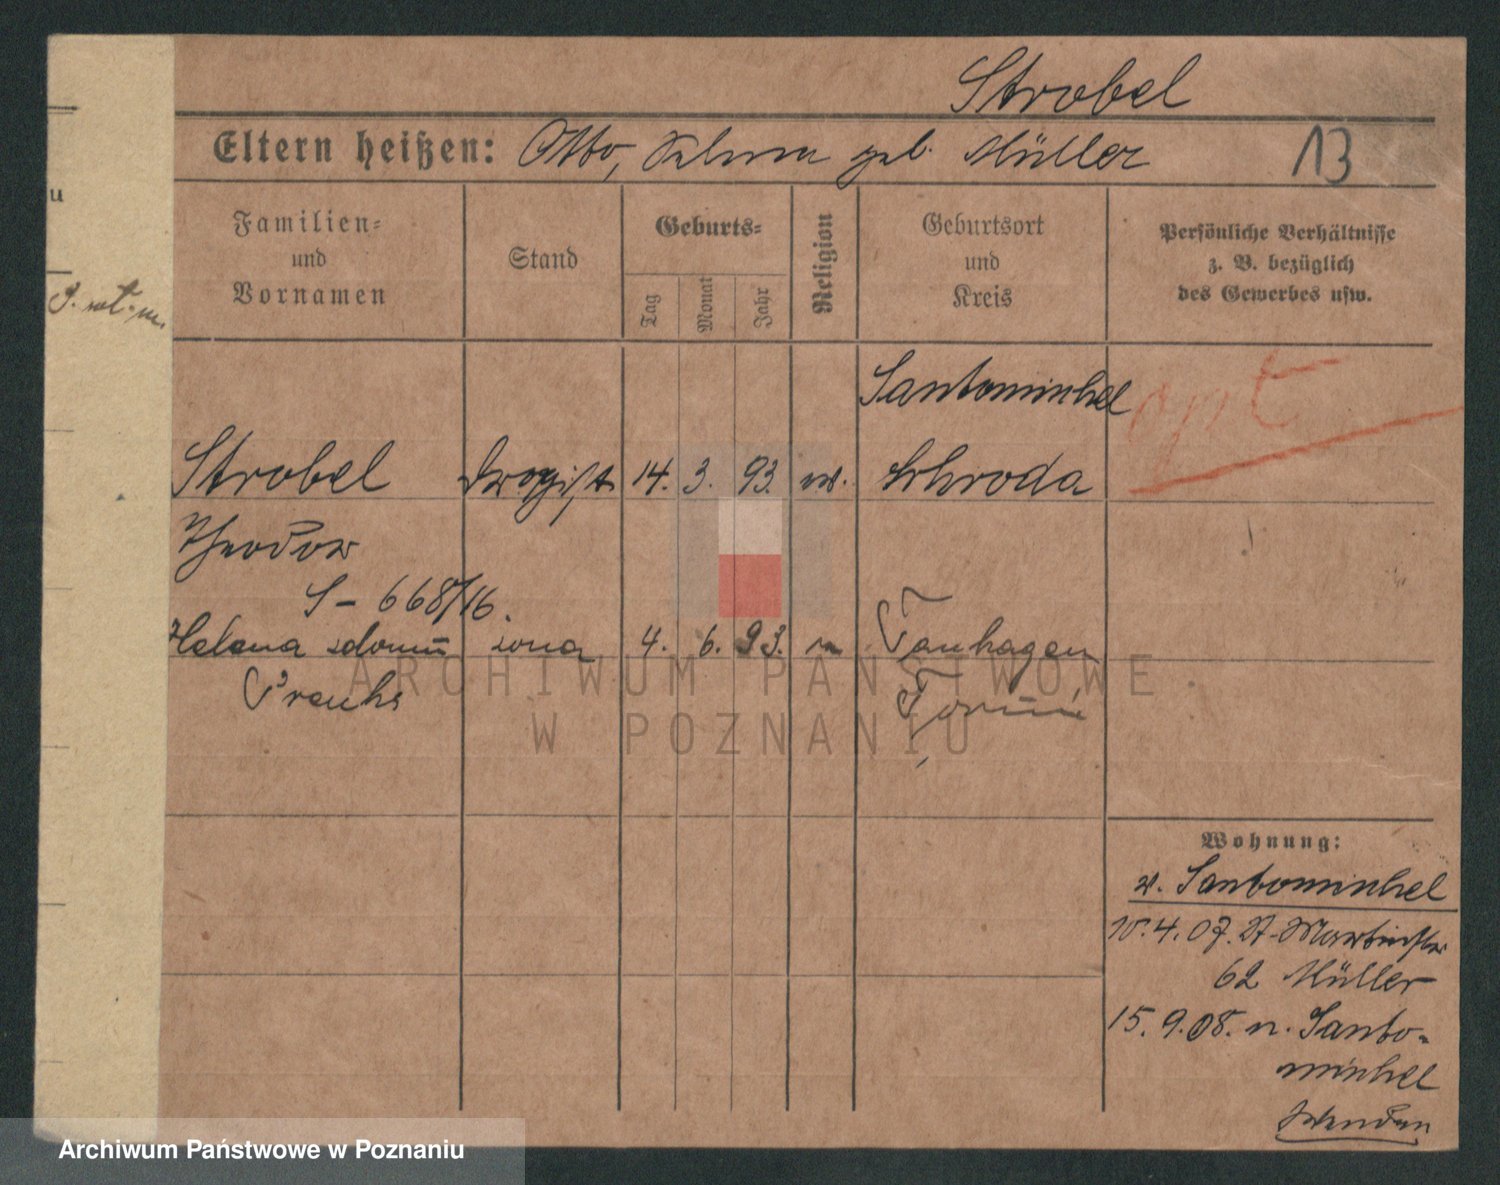 Strobel
Eltern heißen: Otto, geb. Müller
13
u
Familien=
und
Vornamen
Stand
Geburts=
Tag
Monat
Jahr
Religion
Geburtsort
und
Kreis
Persönliche Verhältnisse
z. B. bezüglich
des Gewerbes usw.
Santomischel
opt
Strobel Drogist 14. 3. 93. ev. Schroda
Theodor
S - 668/16.
Helena żona 4. 6. 93.
Krauhs
Toruń
ARCHIWUM PAŃSTWOWE
W POZNANIU
Wohnung:
v. Santomischel
10.4.07. St. Martinstr
62 Müller
15.9.08. n. Santo-
mischel
Wenden
Archiwum Państwowe w Poznaniu